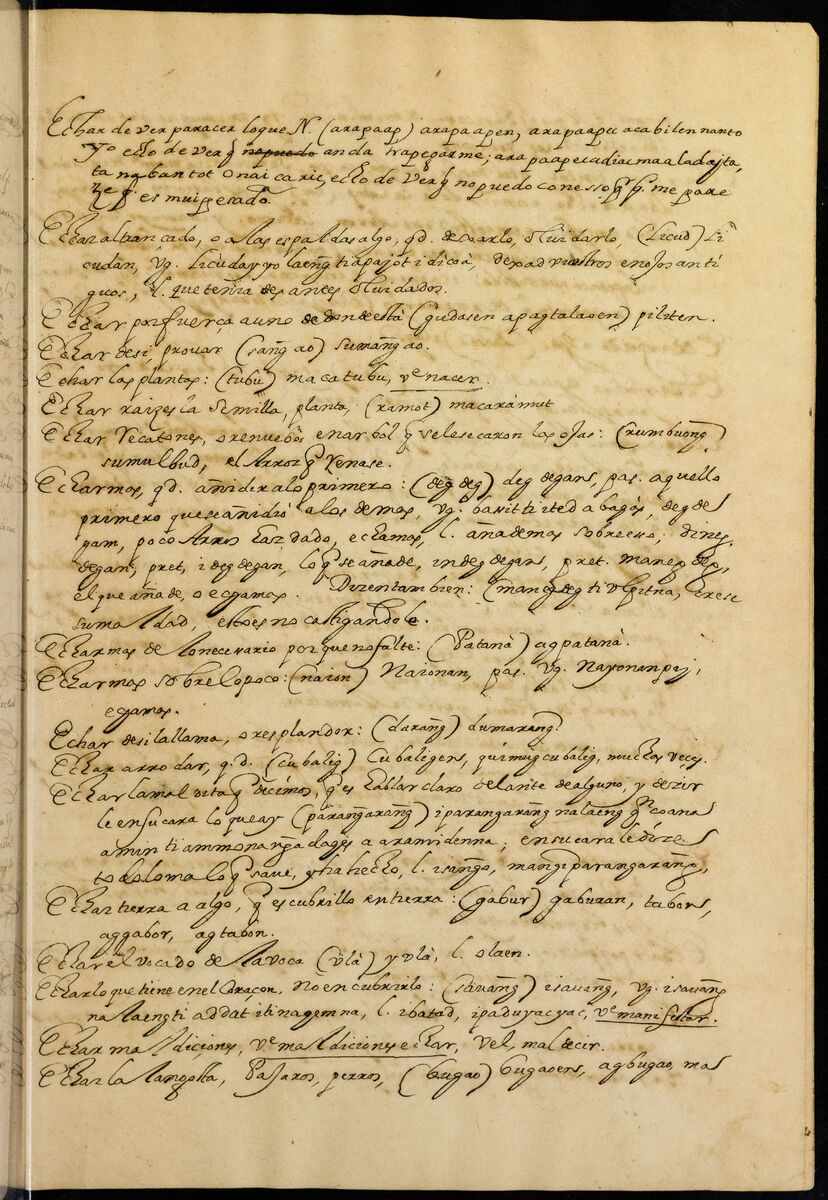 Echar de ver paracer lo que N. (arapaap) arapaapen, arapaapcu aca bilennanto
yo echo de ver q̃ nopuedo anda trapcgarme; arapaapecu diac maaladajta,
ta naban tot onai carit, echo de ver q̃ no puedo con esso, me pare
ze q̃ es mui pesado.
Echar al trançado, o a las espaldas algo, q.d. dexarlo, oluidarlo, (Licud) Li
cudan, vg. Licudayyo laeng̃ tiapajot idicoà, dexad vuestros enojos anti
guos, l. que tenia des antes oluidados.
Echar por fuerça a uno de donde està (gudasen apagtalaoen) piliten.
Echar de si, prouar (sang̃ao) sumang̃ao.
Echar las plantas: (tubu) macatubu, ve nacer.
Echar raizes la semilla, planta, (ramot) macarámut
Echar Vecatones, o renuebos en arbol q̃ se le secaron las ojas: (rumbuong̃)
sumulbud, el Arroz q̃ Venase.
Echar mas, q.d. añidir a lo primero: (deg deg) deg degans, pas. aquello
primero que se añidiò a los demas, vg. bassit ti ited a bagàs, deg de
gam, poco Arros has dado, echa mas, l. añade mas sobre esso; dineg
degan, pret, i deg degan, lo q̃ se añade, indeg degans, pret. maneg deg,
el que añade, o echa mas. Dizen tambien: (maneg deg ti vlpitna, crese
su maldad, esto es no castigandole.
Echar mas de lo necesario por que no falte: (Patanà) agpatanà.
Echar mas sobre lo poco: (naion) Naionan, pas. vg. Nayonanpay,
echa mas.
Echar de si la llama, o resplandor: (darang̃) dumarang̃
Echar a rrodar, q.d. (cubalig) Cubaligens, quimugcubalig, muchas veces.
Echar la maldita q̃ decimos, q̃ es hablar claro delante de alguno, y dezir
le en su cara lo que ay (pàrang̃arang̃) iparangarang̃ na laeng̃
amin ti ammonang̃a dagès a aramidenna; en su cara le dize
todo lo malo q̃ saue, y ha hecho, l. isang̃o, mang̃iparangarang̃,
Echar tierra a algo, q̃ es cubrillo en tierra: (gabur) gaburan, tabons,
aggabor, agtabon.
Echar el vocado de la voca (vlà) yvlà, l. olaen.
Echar lo que tiene en el Coraçon, no encubrirlo: (sàuang̃) isauang̃, vg. isauang̃
na laeng ti addat iti nagemna, l. ibatad, ipaduyacyac, ve manifestar.
Echar maldiciones, ve maldiciones echar, Vel, maldecir.
Echar la langosta, Pajaros, perros, (bugao) bugaoens, agbugao, mas